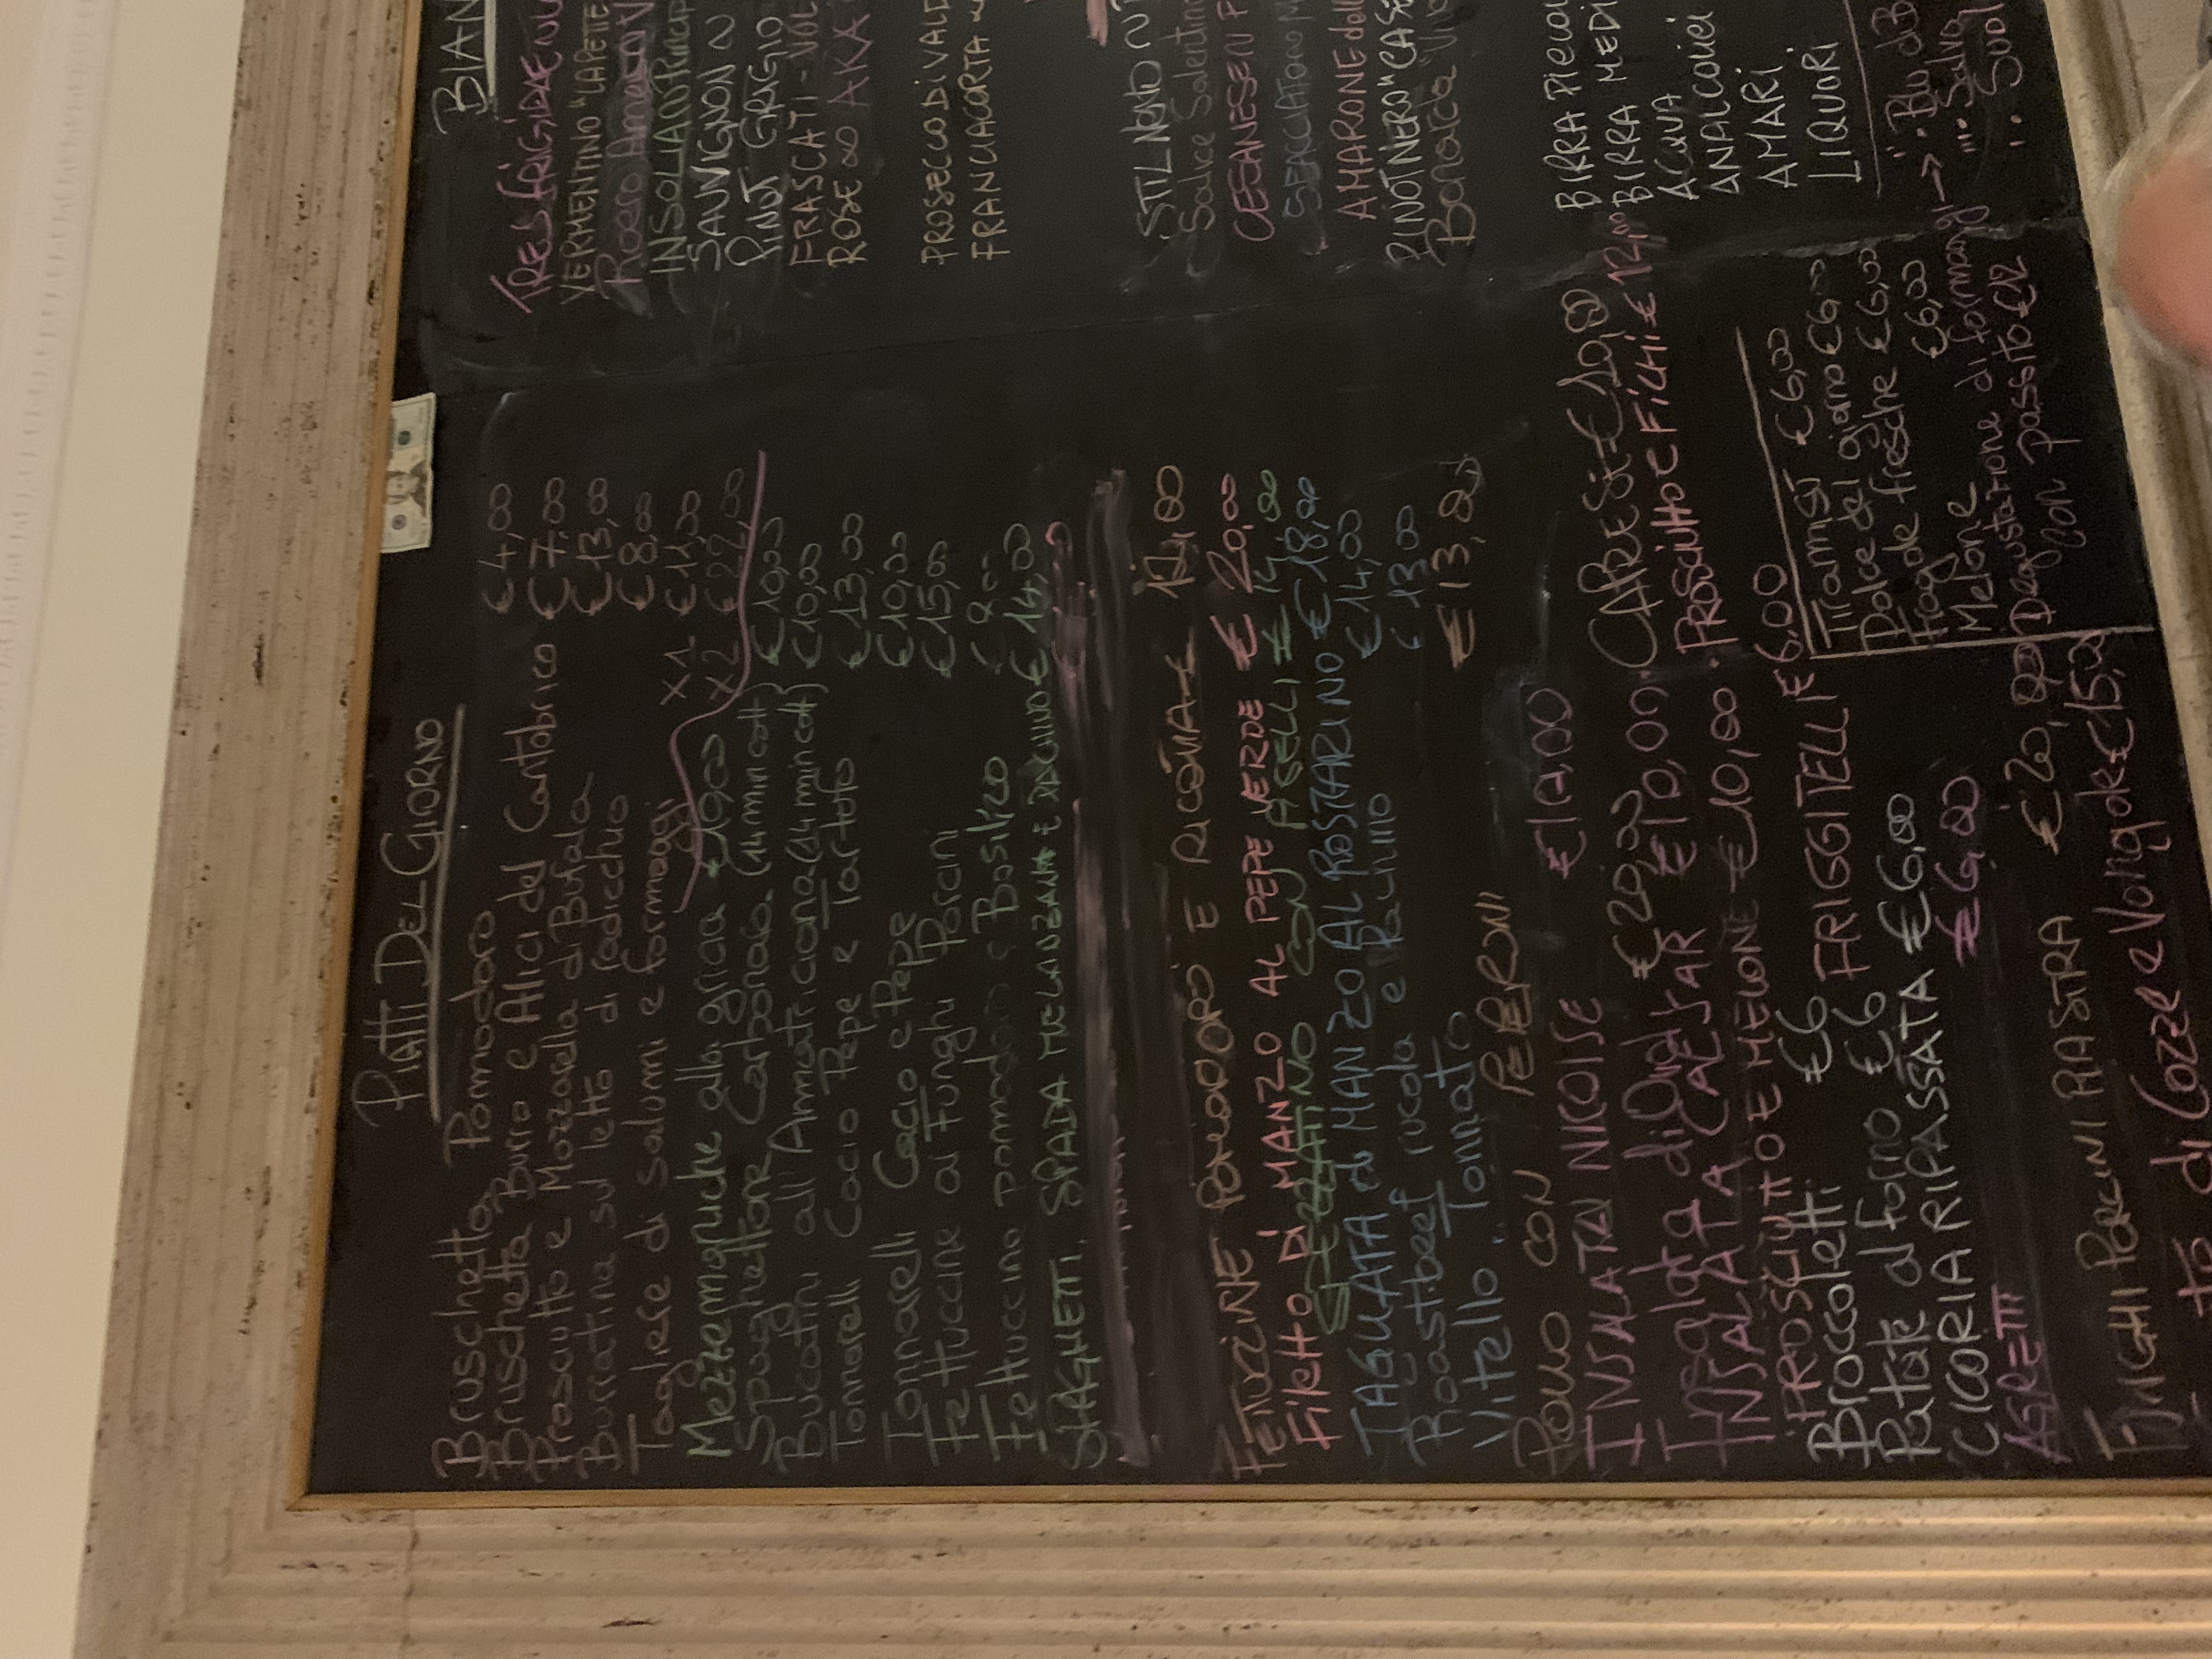 PIATTI DEL GIORNO
Bruschetta Pomodoro €4,00
Bruschetta Burro e Alici del Cantabrico €7,00
Prosciutto e Mozzarella di Bufala €13,00
Burratina su letto di radicchio €8,00
Tagliere di salumi e formaggi x1 €11,00
x2 €22,00
Mezzemaniche alla gricia €10,00
Spaghettone Carbonara (14 min cott) €10,00
Bucatini all'Amatriciana (14 min cott) €10,00
Tonnarelli Cacio Pepe e Tartufo €13,00
Tonnarelli Cacio e Pepe €10,00
Fettuccine ai Funghi Porcini €15,00
Fettuccine pomodoro e Basilico €8,00
SPAGHETTI, SPADA MELANZANE E PACHINO € 14,00
FETTUCCINE POMODORO E RICOTTA €
Filetto DI MANZO AL PEPE VERDE € 20,00
STRACCETTINO CON PISELLI €
TAGLIATA di MANZO AL ROSMARINO € 18,00
Roastbeef rucola e Pachino €14,00
Vitello Tonnato € 13,00
POLLO CON PEPERONI €13,00
INSALATA NICOISE
Insalata di € 20,00
INSALATA CAESAR €10,00
PROSCIUTTO E MELONE €10,00
Broccoletti €6 FRIGGITELLI €6,00
Patate al forno €6
CICORIA RIPASSATA €6,00
AGRETTI €6,00
FUNGHI PORCINI PIASTRA €20,00
di Cozze e Vongole €15,00
CAPRESE €10,00
PROSCIUTTO E FICHI € 12,00
Tiramisù €6,00
Dolce del giorno €6,00
Fragole fresche €6,00
Melone €6,00
Degustazione di formaggi → "Blu di B
con passito €12
BIAN
TRES FRIGIDAE NU
VERMENTINO "LA PETTE
Roero Arneis
INSOLIA
SAUVIGNON
PINOT GRIGIO
FRASCATI - VOL
ROSE
PROSECCO DI VALD
FRANCIACORTA
Salice Salentino
CESANESE
AMARONE della
PINOT NERO "CASE
Bonarda
BIRRA PICCOL
BIRRA MEDI
ACQUA
ANALCOLICI
AMARI
LIQUORI